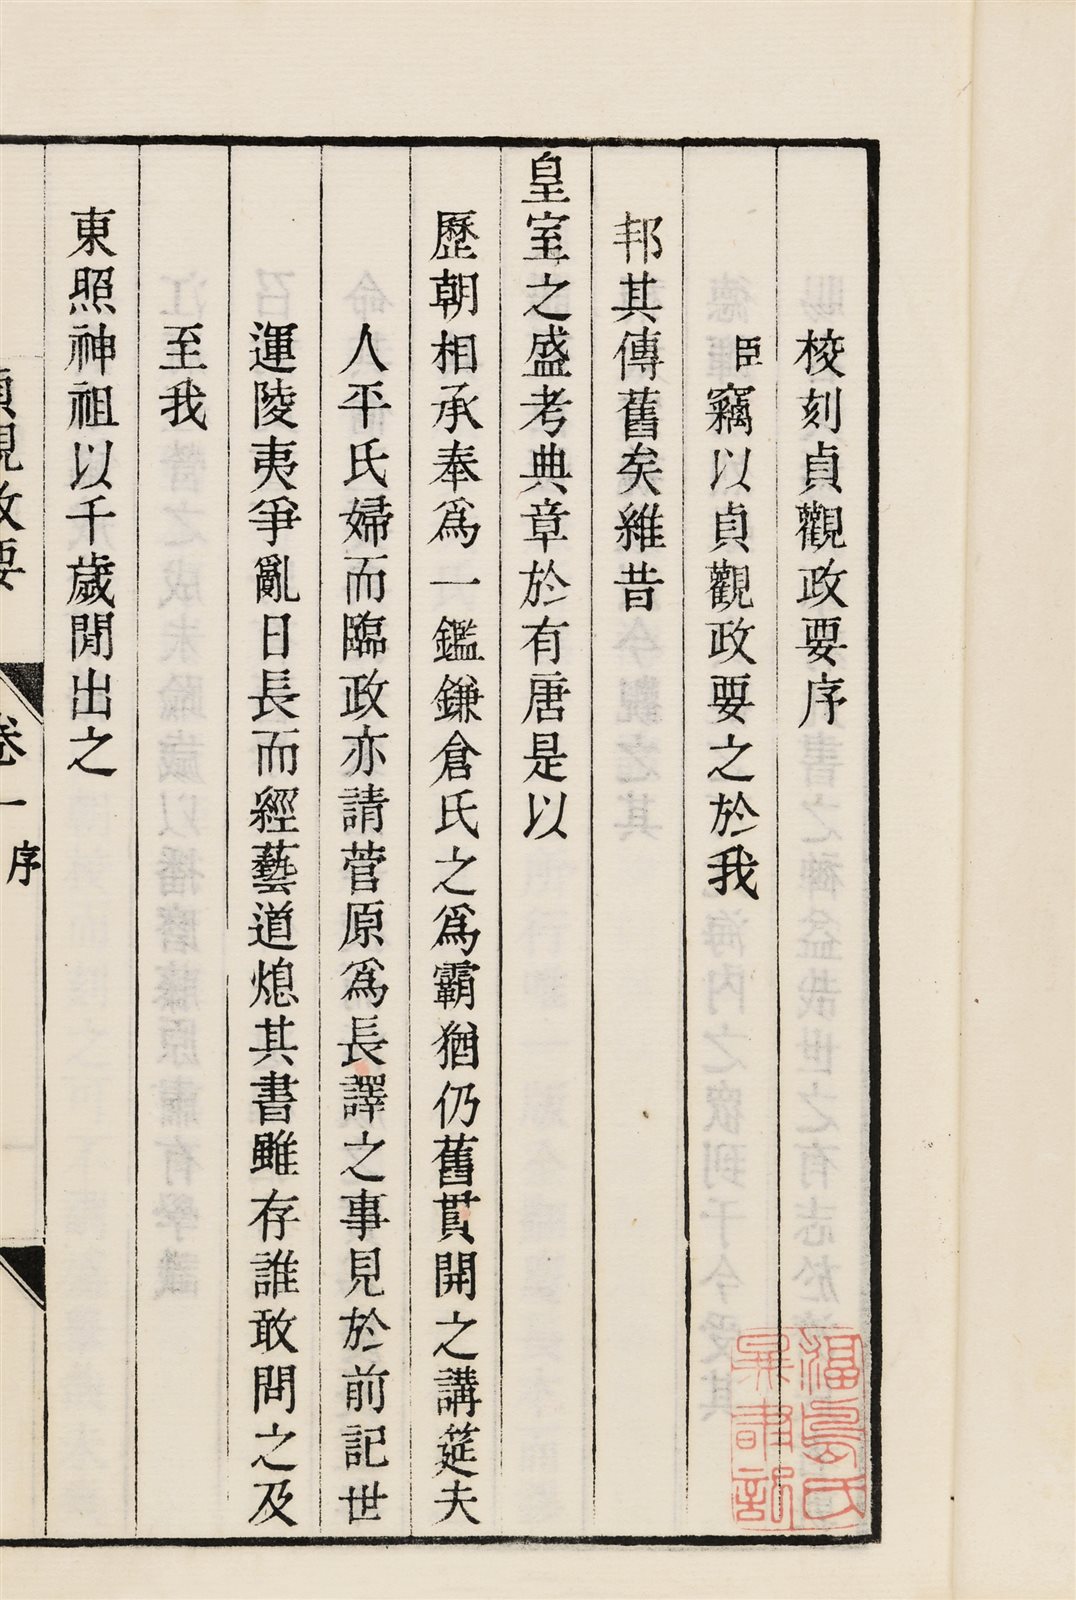 校刻貞觀政要序
臣竊以貞觀政要之於我
邦其傳舊矣維昔
皇室之盛考典章於有唐是以
歷朝相承奉爲一鑑鎌倉氏之爲霸猶仍舊貫開之講筵夫
人平氏婦而臨政亦請菅原爲長譯之事見於前記世
運陵夷爭亂日長而經藝道熄其書雖存誰敢問之及
至我
東照神祖以千歲閒出之
貞觀政要 卷一 序
福島氏